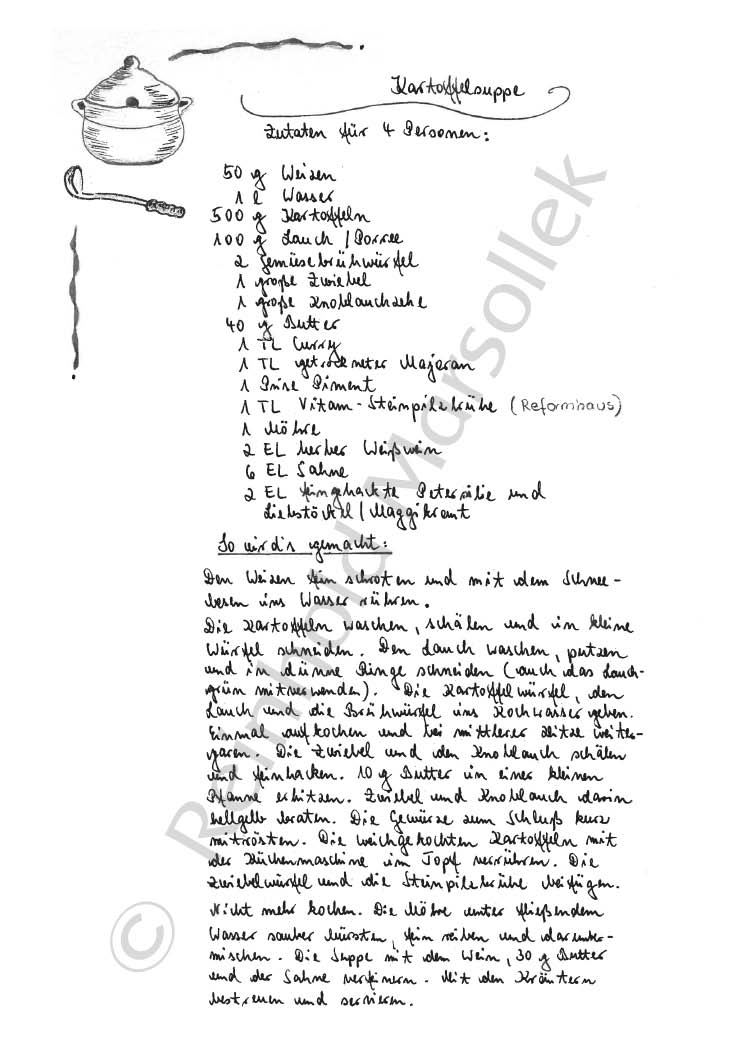 Kartoffelsuppe
Zutaten für 4 Personen:
50 g Weizen
1 l Wasser
500 g Kartoffeln
100 g Lauch / Porree
2 Gemüsebrühwürfel
1 große Zwiebel
1 große Knoblauchzehe
40 g Butter
1 TL Curry
1 TL getrockneter Majoran
1 Prise Piment
1 TL Vitam-Steinpilzbrühe (Reformhaus)
1 Möhre
2 EL herber Weißwein
6 EL Sahne
2 EL feingehackte Petersilie und
Liebstöckel / Maggikraut
So wird's gemacht:
Den Weizen fein schroten und mit dem Schnee-
besen ins Wasser rühren.
Die Kartoffeln waschen, schälen und in kleine
Würfel schneiden. Den Lauch waschen, putzen
und in dünne Ringe schneiden (auch das Lauch-
grün mitverwenden). Die Kartoffelwürfel, den
Lauch und die Brühwürfel ins Kochwasser geben.
Einmal aufkochen und bei mittlerer Hitze weiter-
garen. Die Zwiebel und den Knoblauch schälen
und feinhacken. 10 g Butter in einer kleinen
Pfanne erhitzen. Zwiebel und Knoblauch darin
hellgelb braten. Die Gewürze zum Schluß kurz
mitrösten. Die weichgekochten Kartoffeln mit
der Küchenmaschine im Topf verrühren. Die
Zwiebelwürfel und die Steinpilzbrühe beifügen.
Nicht mehr kochen. Die Möhre unter fließendem
Wasser sauber bürsten, fein reiben und darunter-
mischen. Die Suppe mit dem Wein, 30 g Butter
und der Sahne verfeinern. Mit den Kräutern
bestreuen und servieren.
© Reinhold Marsollek